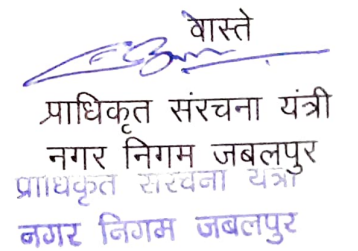 वास्ते
प्राधिकृत संरचना यंत्री
नगर निगम जबलपुर
प्राधिकृत संरचना यंत्री
नगर निगम जबलपुर